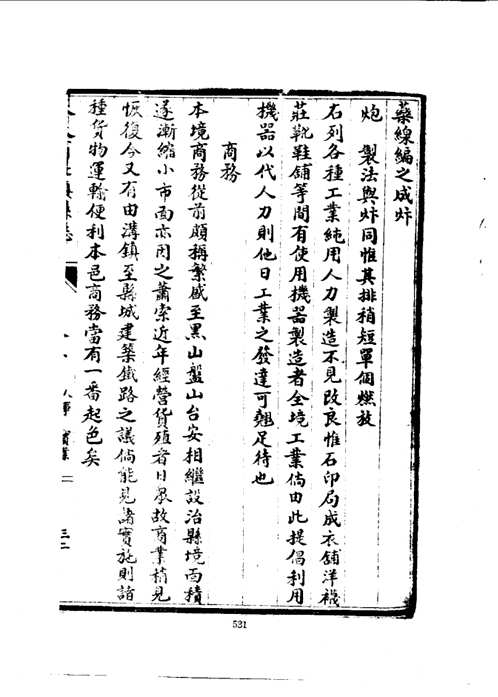 藥線編之成炸
炮 製法與炸同惟其排稍短單個燃放
右列各種工業純用人力製造不見改良惟石印局成衣舖洋襪
莊靴鞋舖等間有使用機器製造者全境工業倘由此提倡利用
機器以代人力則他日工業之發達可翹足待也
商務
本境商務從前頗稱繁盛至黑山盤山台安相繼設治縣境面積
遂漸縮小市面亦因之蕭索近年經營貨殖者日衆故商業稍見
恢復今又有由溝鎮至縣城建築鐵路之議倘能見諸實施則諸
種貨物運輸便利本邑商務當有一番起色矣
人事 實業
三二
531